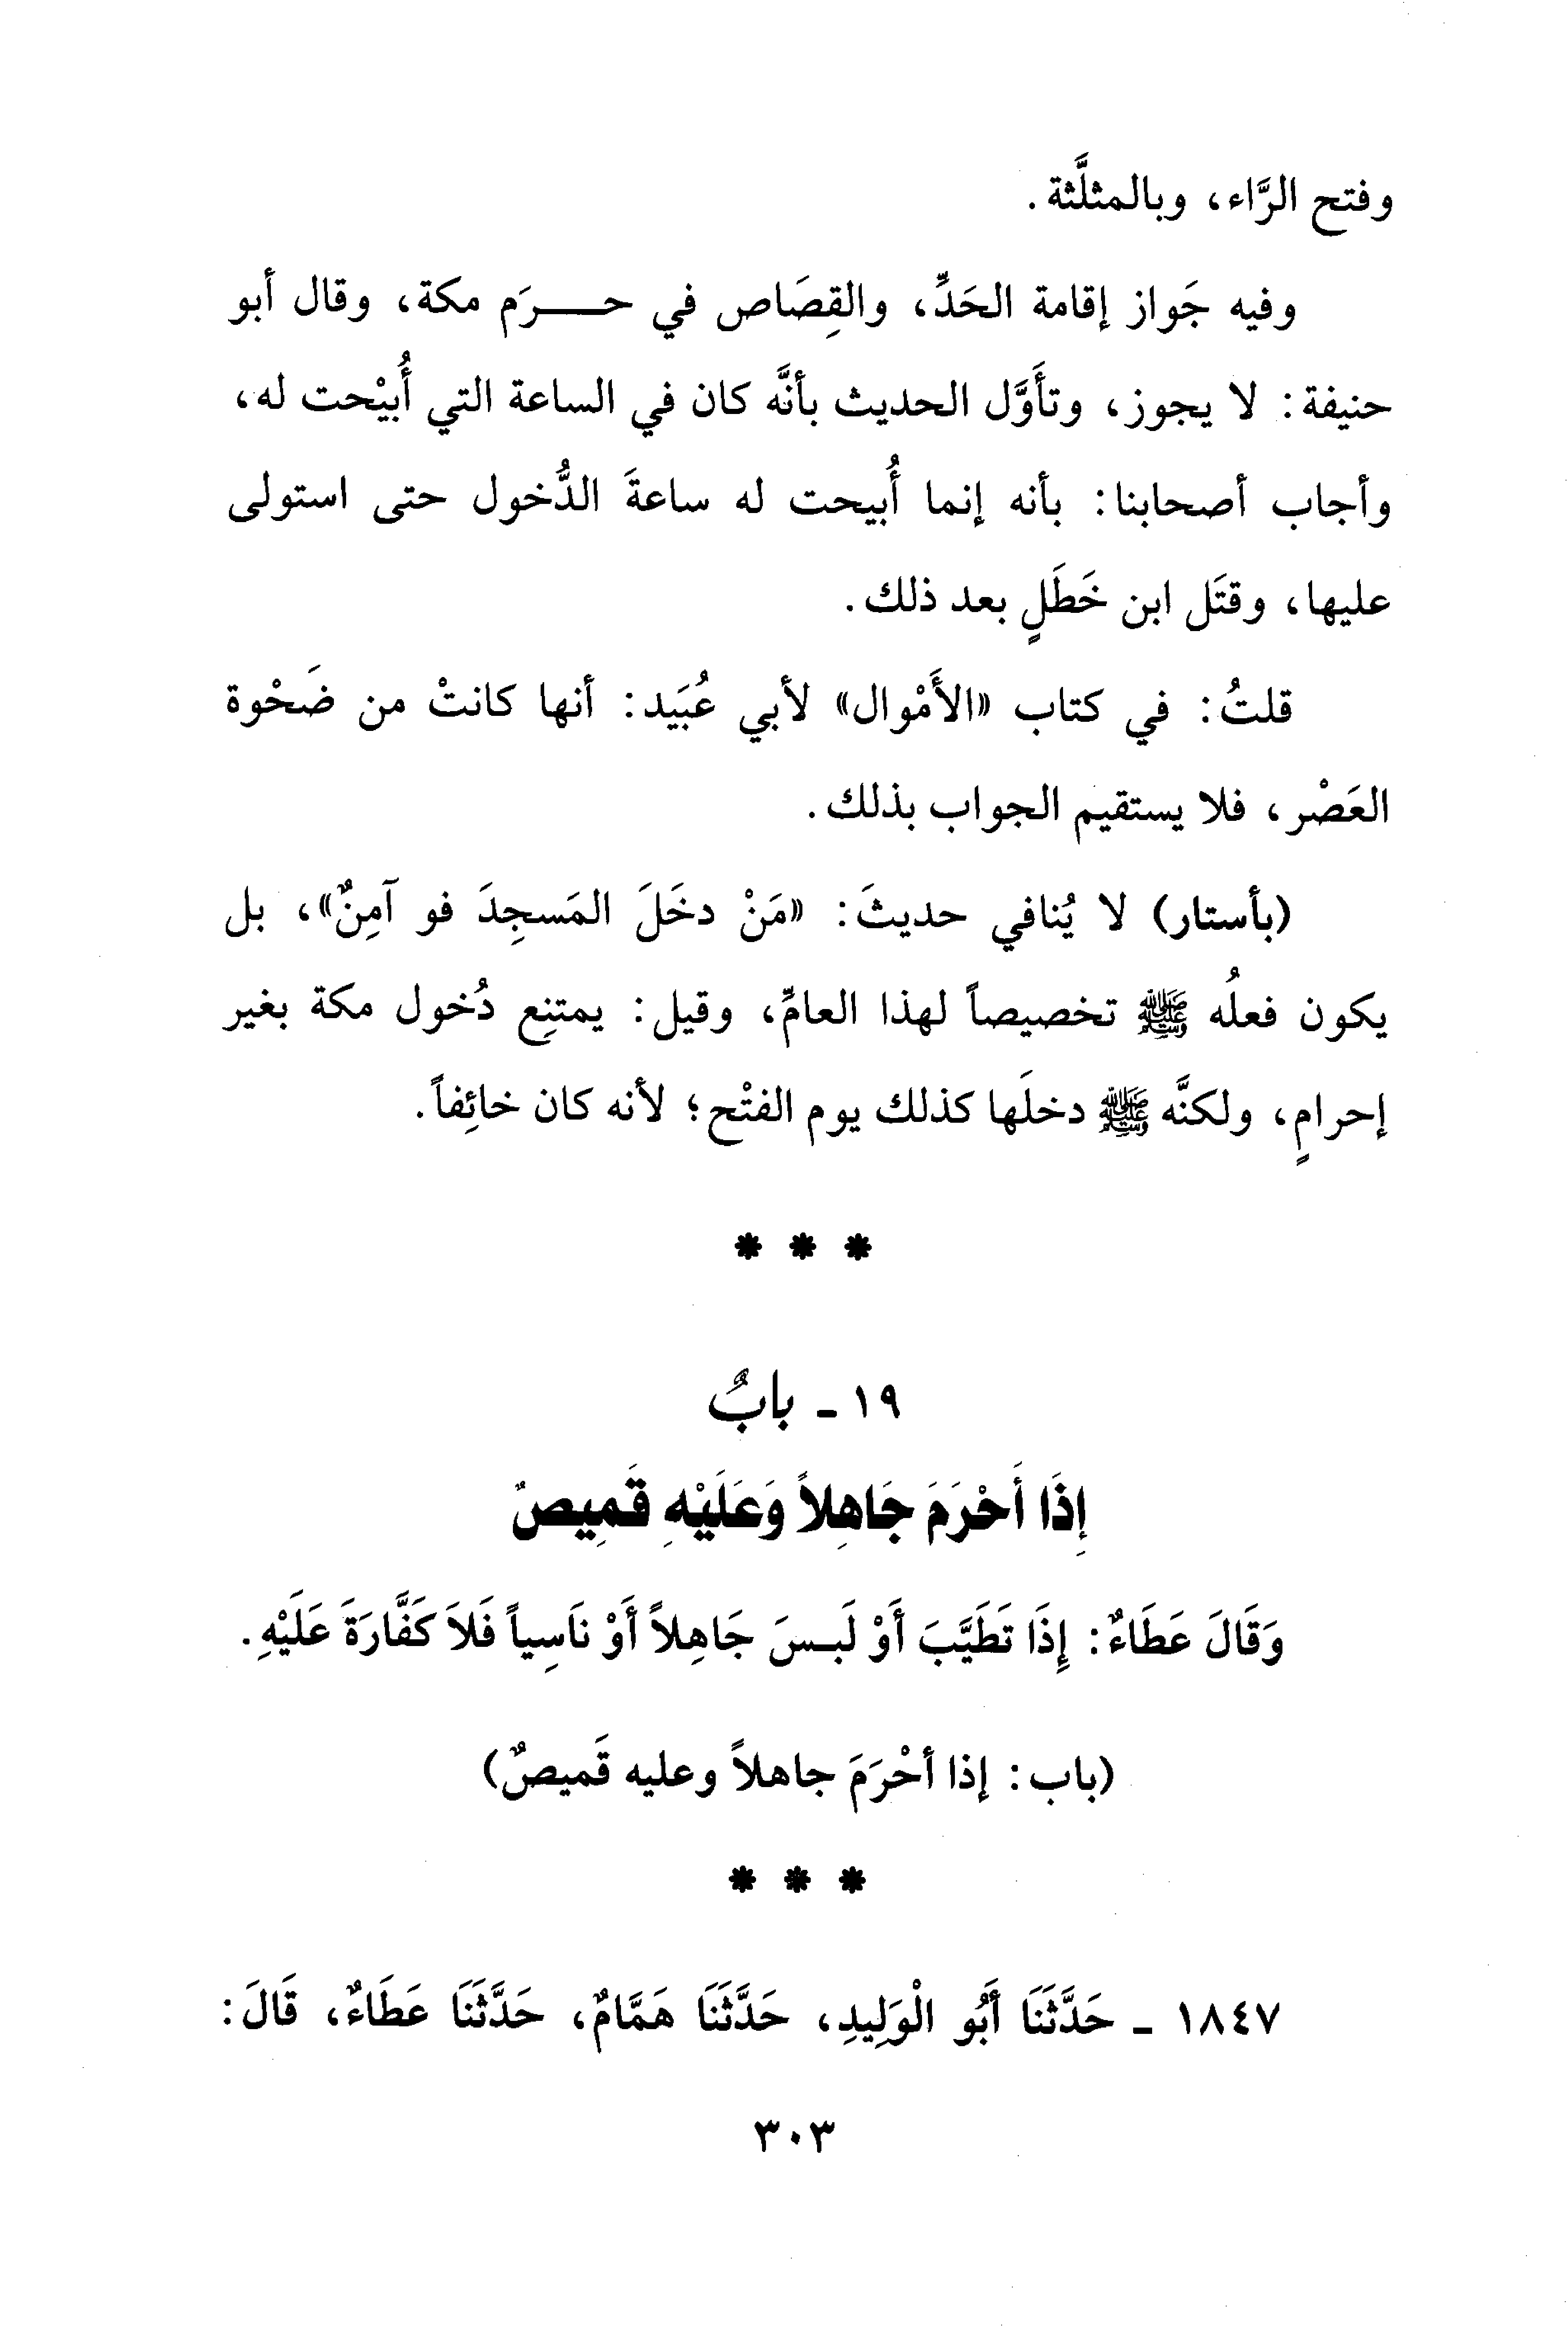 وفتح الرَّاء، وبالمثلَّثة.
وفيه جَواز إقامة الحَدِّ، والقِصَاص في حـــرَم مكة، وقال أبو
حنيفة: لا يجوز، وتأَوَّل الحديث بأنَّه كان في الساعة التي أُبيْحت له،
وأجاب أصحابنا: بأنه إنما أُبيحت له ساعةَ الدُّخول حتى استولى
عليها، وقتَل ابن خَطَلٍ بعد ذلك.
قلتُ: في كتاب «الأَمْوال» لأبي عُبَيد: أنها كانتْ من ضَحْوة
العَصْر، فلا يستقيم الجواب بذلك.
(بأستار) لا يُنافي حديثَ: «مَنْ دخَلَ المَسجِدَ فو آمِنٌ»، بل
يكون فعلُه ﷺ تخصيصاً لهذا العامِّ، وقيل: يمتنِع دُخول مكة بغير
إحرامٍ، ولكنَّه ﷺ دخلَها كذلك يوم الفتْح؛ لأنه كان خائِفاً.
* * *
١٩ - بابٌ
إِذَا أَحْرَمَ جَاهِلاً وَعَلَيْهِ قَمِيصٌ
وَقَالَ عَطَاءٌ: إِذَا تَطَيَّبَ أَوْ لَبـسَ جَاهِلاً أَوْ نَاسِياً فَلاَ كَفَّارَةَ عَلَيْهِ.
(باب: إذا أحْرَمَ جاهلاً وعليه قَميصٌ)
* * *
١٨٤٧ - حَدَّثَنَا أَبُو الْوَلِيدِ، حَدَّثَنَا هَمَّامٌ، حَدَّثَنَا عَطَاءٌ، قَالَ:
٣٠٣